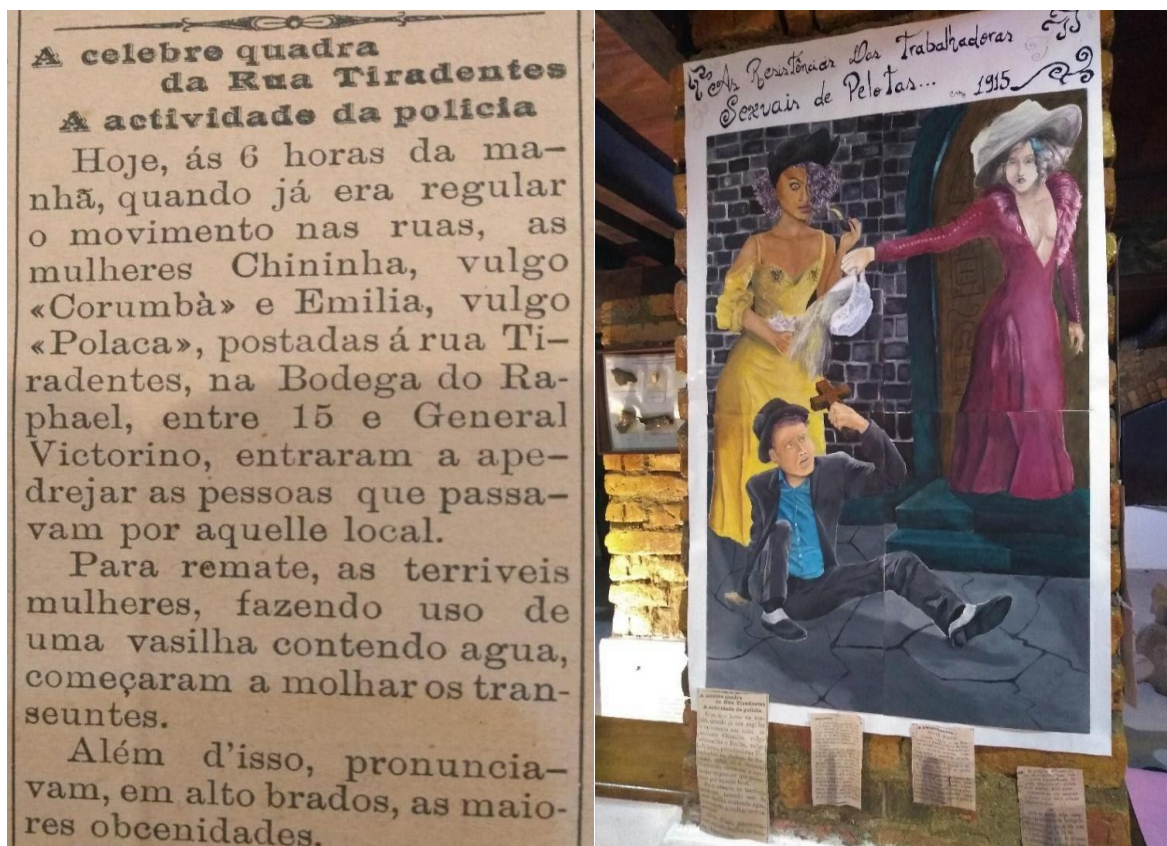 A celebre quadra
da Rua Tiradentes
A actividade da policia
Hoje, ás 6 horas da ma-
nhã, quando já era regular
o movimento nas ruas, as
mulheres Chininha, vulgo
«Corumbà» e Emilia, vulgo
«Polaca», postadas á rua Ti-
radentes, na Bodega do Ra-
phael, entre 15 e General
Victorino, entraram a ape-
drejar as pessoas que passa-
vam por aquelle local.
Para remate, as terriveis
mulheres, fazendo uso de
uma vasilha contendo agua,
começaram a molhar os tran-
seuntes.
Além d'isso, pronuncia-
vam, em alto brados, as maio-
res obcenidades.
As Resistências Das Trabalhadoras
Sexuais de Pelotas... em 1915
A celebre quadra
da Rua Tiradentes
A actividade da policia